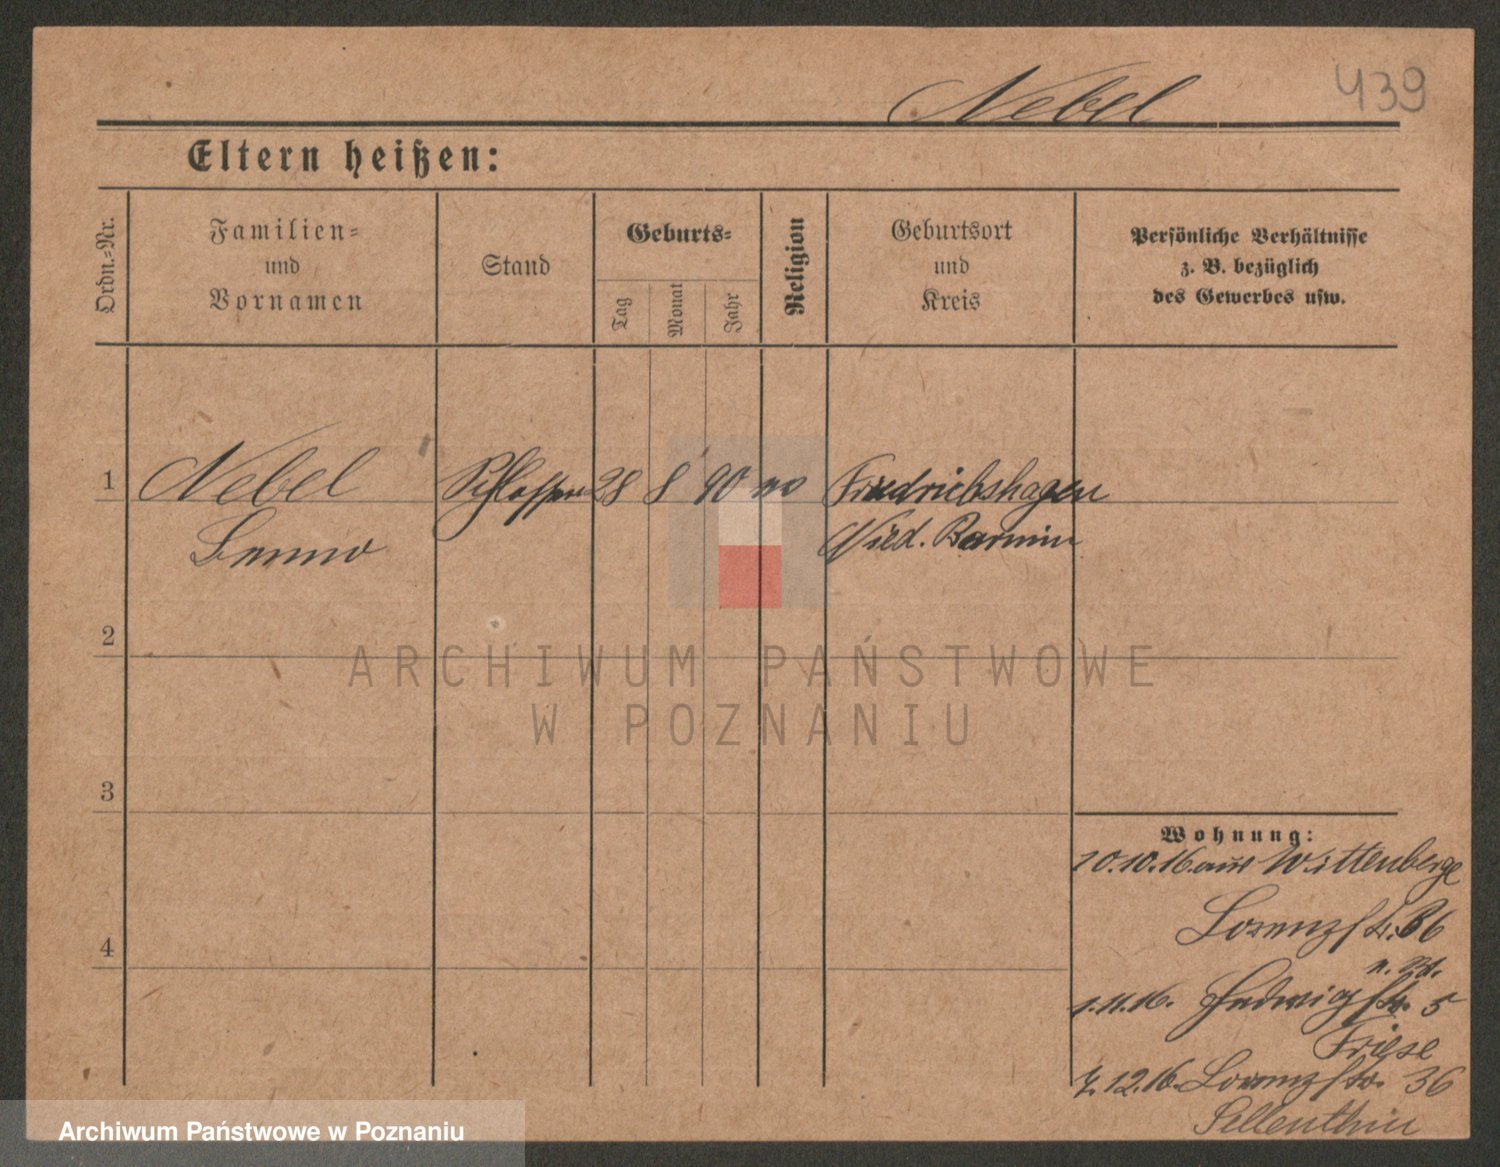 Nebel
439
Eltern heißen:
Ordn.-Nr.
Familien=
und
Vornamen
Stand
Geburts=
Tag
Monat
Jahr
Religion
Geburtsort
und
Kreis
Persönliche Verhältnisse
z. B. bezüglich
des Gewerbes usw.
1
Nebel
Benno
Schlosser
28
8
90
Friedrichshagen
Nied. Barnim
2
3
4
Wohnung:
10.10.16. aus Wittenberge
Lorenzstr. 36
1.11.16. Hedwigstr. 5
Friese
7.12.16. Lorenzstr. 36
Sellenthin
ARCHIWUM PAŃSTWOWE
W POZNANIU
Archiwum Państwowe w Poznaniu